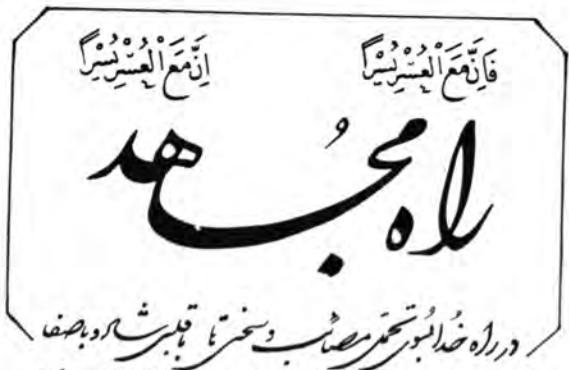 فَاِنَّ مَعَ الْعُسْرِ يُسْرًا
اِنَّ مَعَ الْعُسْرِ يُسْرًا
راه مُجاهد
در راه خدا بسوی تحمل مصائب و سختی‌ها با قلبی شاد و با صفا